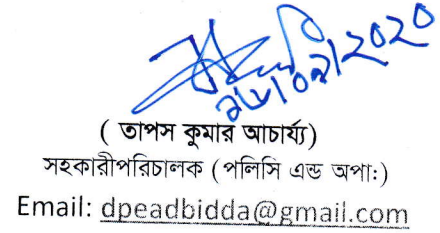 ( তাপস কুমার আচার্য্য)
সহকারীপরিচালক (পলিসি এন্ড অপা:)
Email: dpeadbidda@gmail.com